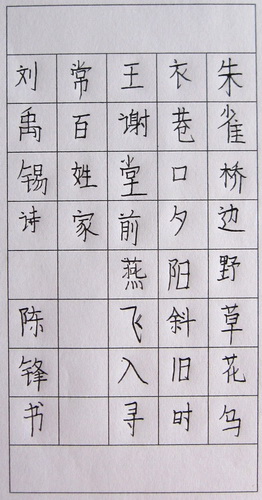 朱雀桥边野草花乌
衣巷口夕阳斜旧时
王谢堂前燕飞入寻
常百姓家
刘禹锡诗 陈锋书